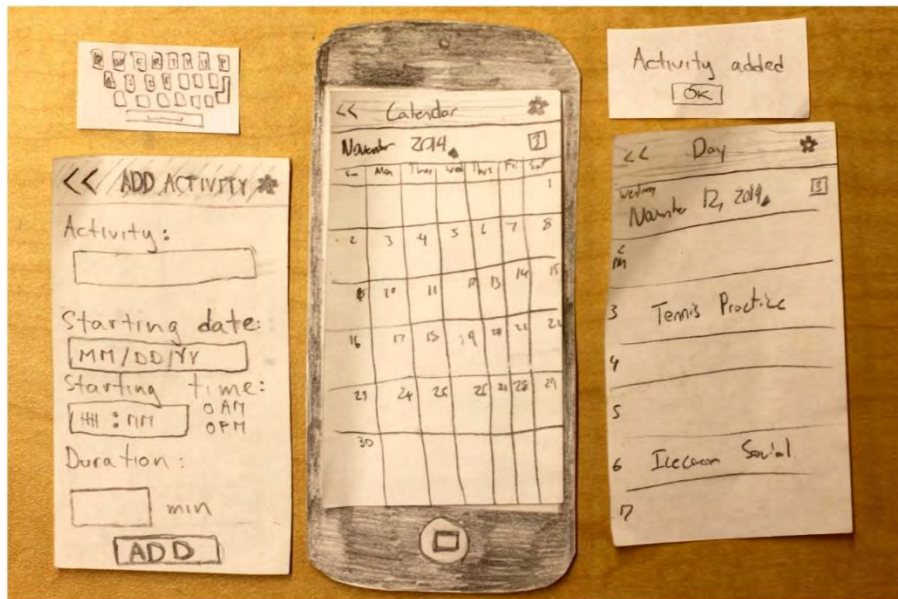 Q W E R T Y U P
<< ADD ACTIVITY
Activity:
Starting date:
MM/DD/YY
Starting time:
HH : MM
O AM
O PM
Duration:
min
ADD
<< Calendar
November 2014
3
Sun Mon Tues Wed Thurs Fri Sat
1
2 3 4 5 6 7 8
10 11 12 13 14 15
16 17 18 19 20 21 22
23 24 25 26 28 29
30
Activity added
OK
<< Day
Wednesday
November 12, 2014
3
2
PM
3 Tennis Practice
4
5
6 Icecream Social
7